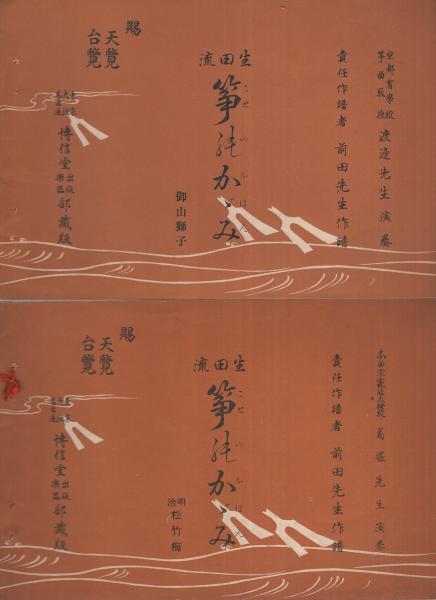 京都盲學校
箏曲教授
渡邊先生演奏
責任作譜者 前田先生作譜
生田流
箏のかゞみ
御山獅子
賜
天覽
台覽
東京
大阪
名古屋
博信堂
出版
樂器
部藏版
先生演奏
責任作譜者 前田先生作譜
生田流
箏のかゞみ
明治
松竹梅
賜
天覽
台覽
博信堂
出版
樂器
部藏版